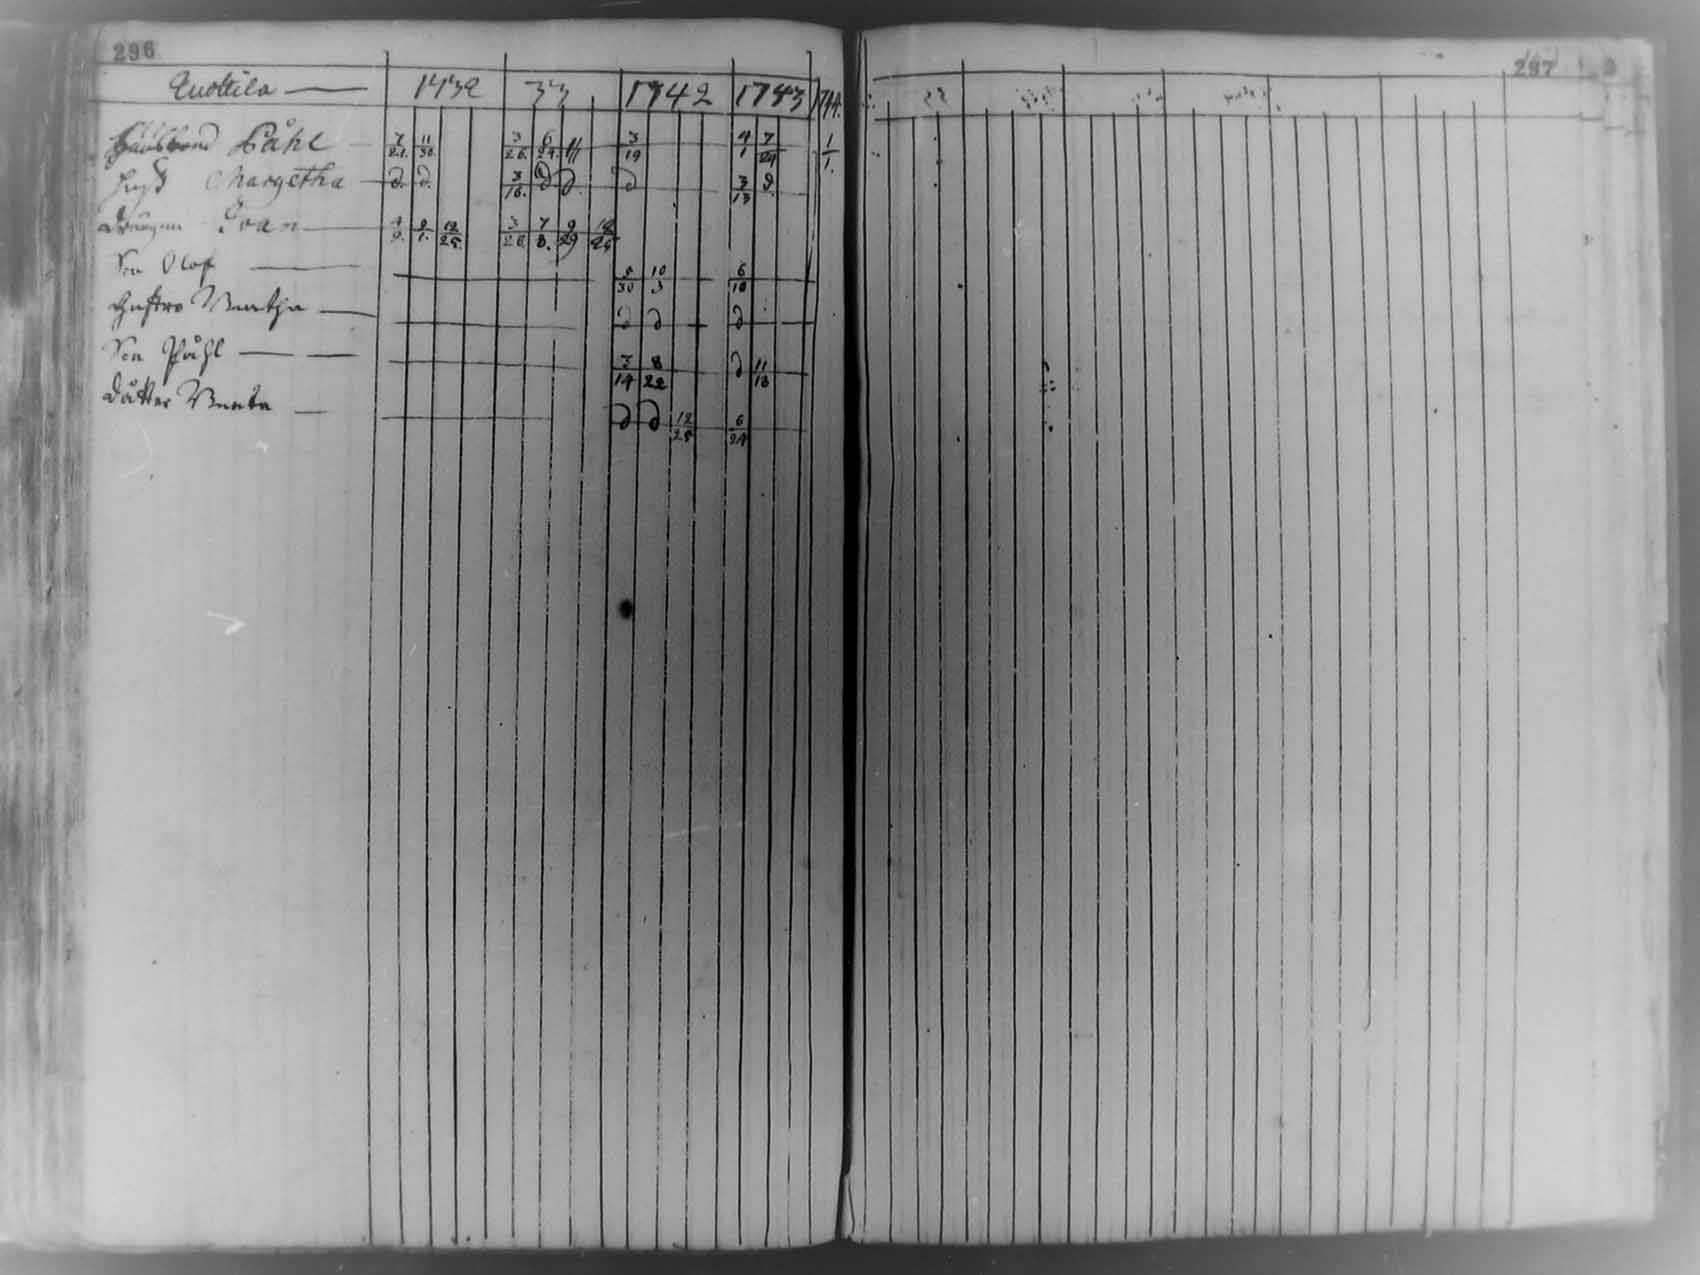 296
Anottila 1732 33 1742 1743 1744.
Påhl 7/21. 11/30. 3/26. 6/24. 3/19 4/1 7/24 1/1.
Hust Margetha d. d. 3/16. d d. d 3/13 d.
Drängen Ivan 9/1. 12/25. 3/26. 7/8. 9/29 12/26
Son Olof 5/30 10/3 6/10
Hustro Bertha d d d
Son Påhl 3/14 8/22 d 11/18
Dåtter Berta d d 12/25 6/24
297